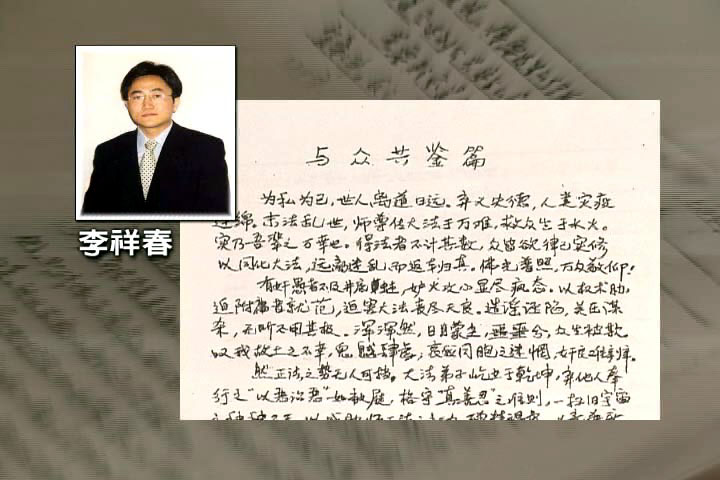 李祥春
与众共鉴篇
为私为己,世人离道日远。弃义失德,人类灾疫
连绵。末法乱世,师尊传大法于万难,救众生于水火。
实乃吾辈之万幸也。得法者不计其数,众皆欲律己实修
以同化大法,远离迷乱而返本归真。佛光普照,万众敬仰!
有奸愚者不及井底 妒火攻心显尽疯态。以权术胁
迫附庸者就范,迫害大法丧尽天良。造谣诬陷,关压谋
杀,无所不用其极。浑浑然,日月蒙尘,噩噩兮,众生被欺
叹我故土之不幸,鬼 肆虐;哀 同胞之迷惘,奸良难辨。
然正法之势无人可挡。大法弟子屹立于乾坤,弃他人奉
行之“以恶治恶”如敝屣,恪守“真善忍”之准则,一扫旧宇宙